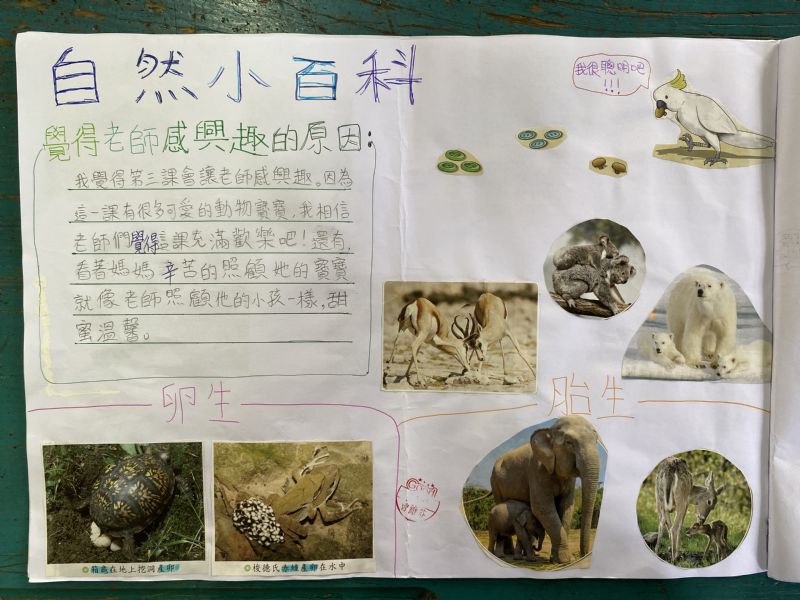 自然小百科
我很聰明吧
!!!
覺得老師感興趣的原因:
我覺得第三課會讓老師感興趣。因為
這一課有很多可愛的動物寶寶,我相信
老師們覺得這課充滿歡樂吧!還有,
看著媽媽辛苦的照顧她的寶寶
就像老師照顧他的小孩一樣,甜
蜜溫馨。
卵生
胎生
箱龜在地上挖洞產卵
梭德氏赤蛙產卵在水中